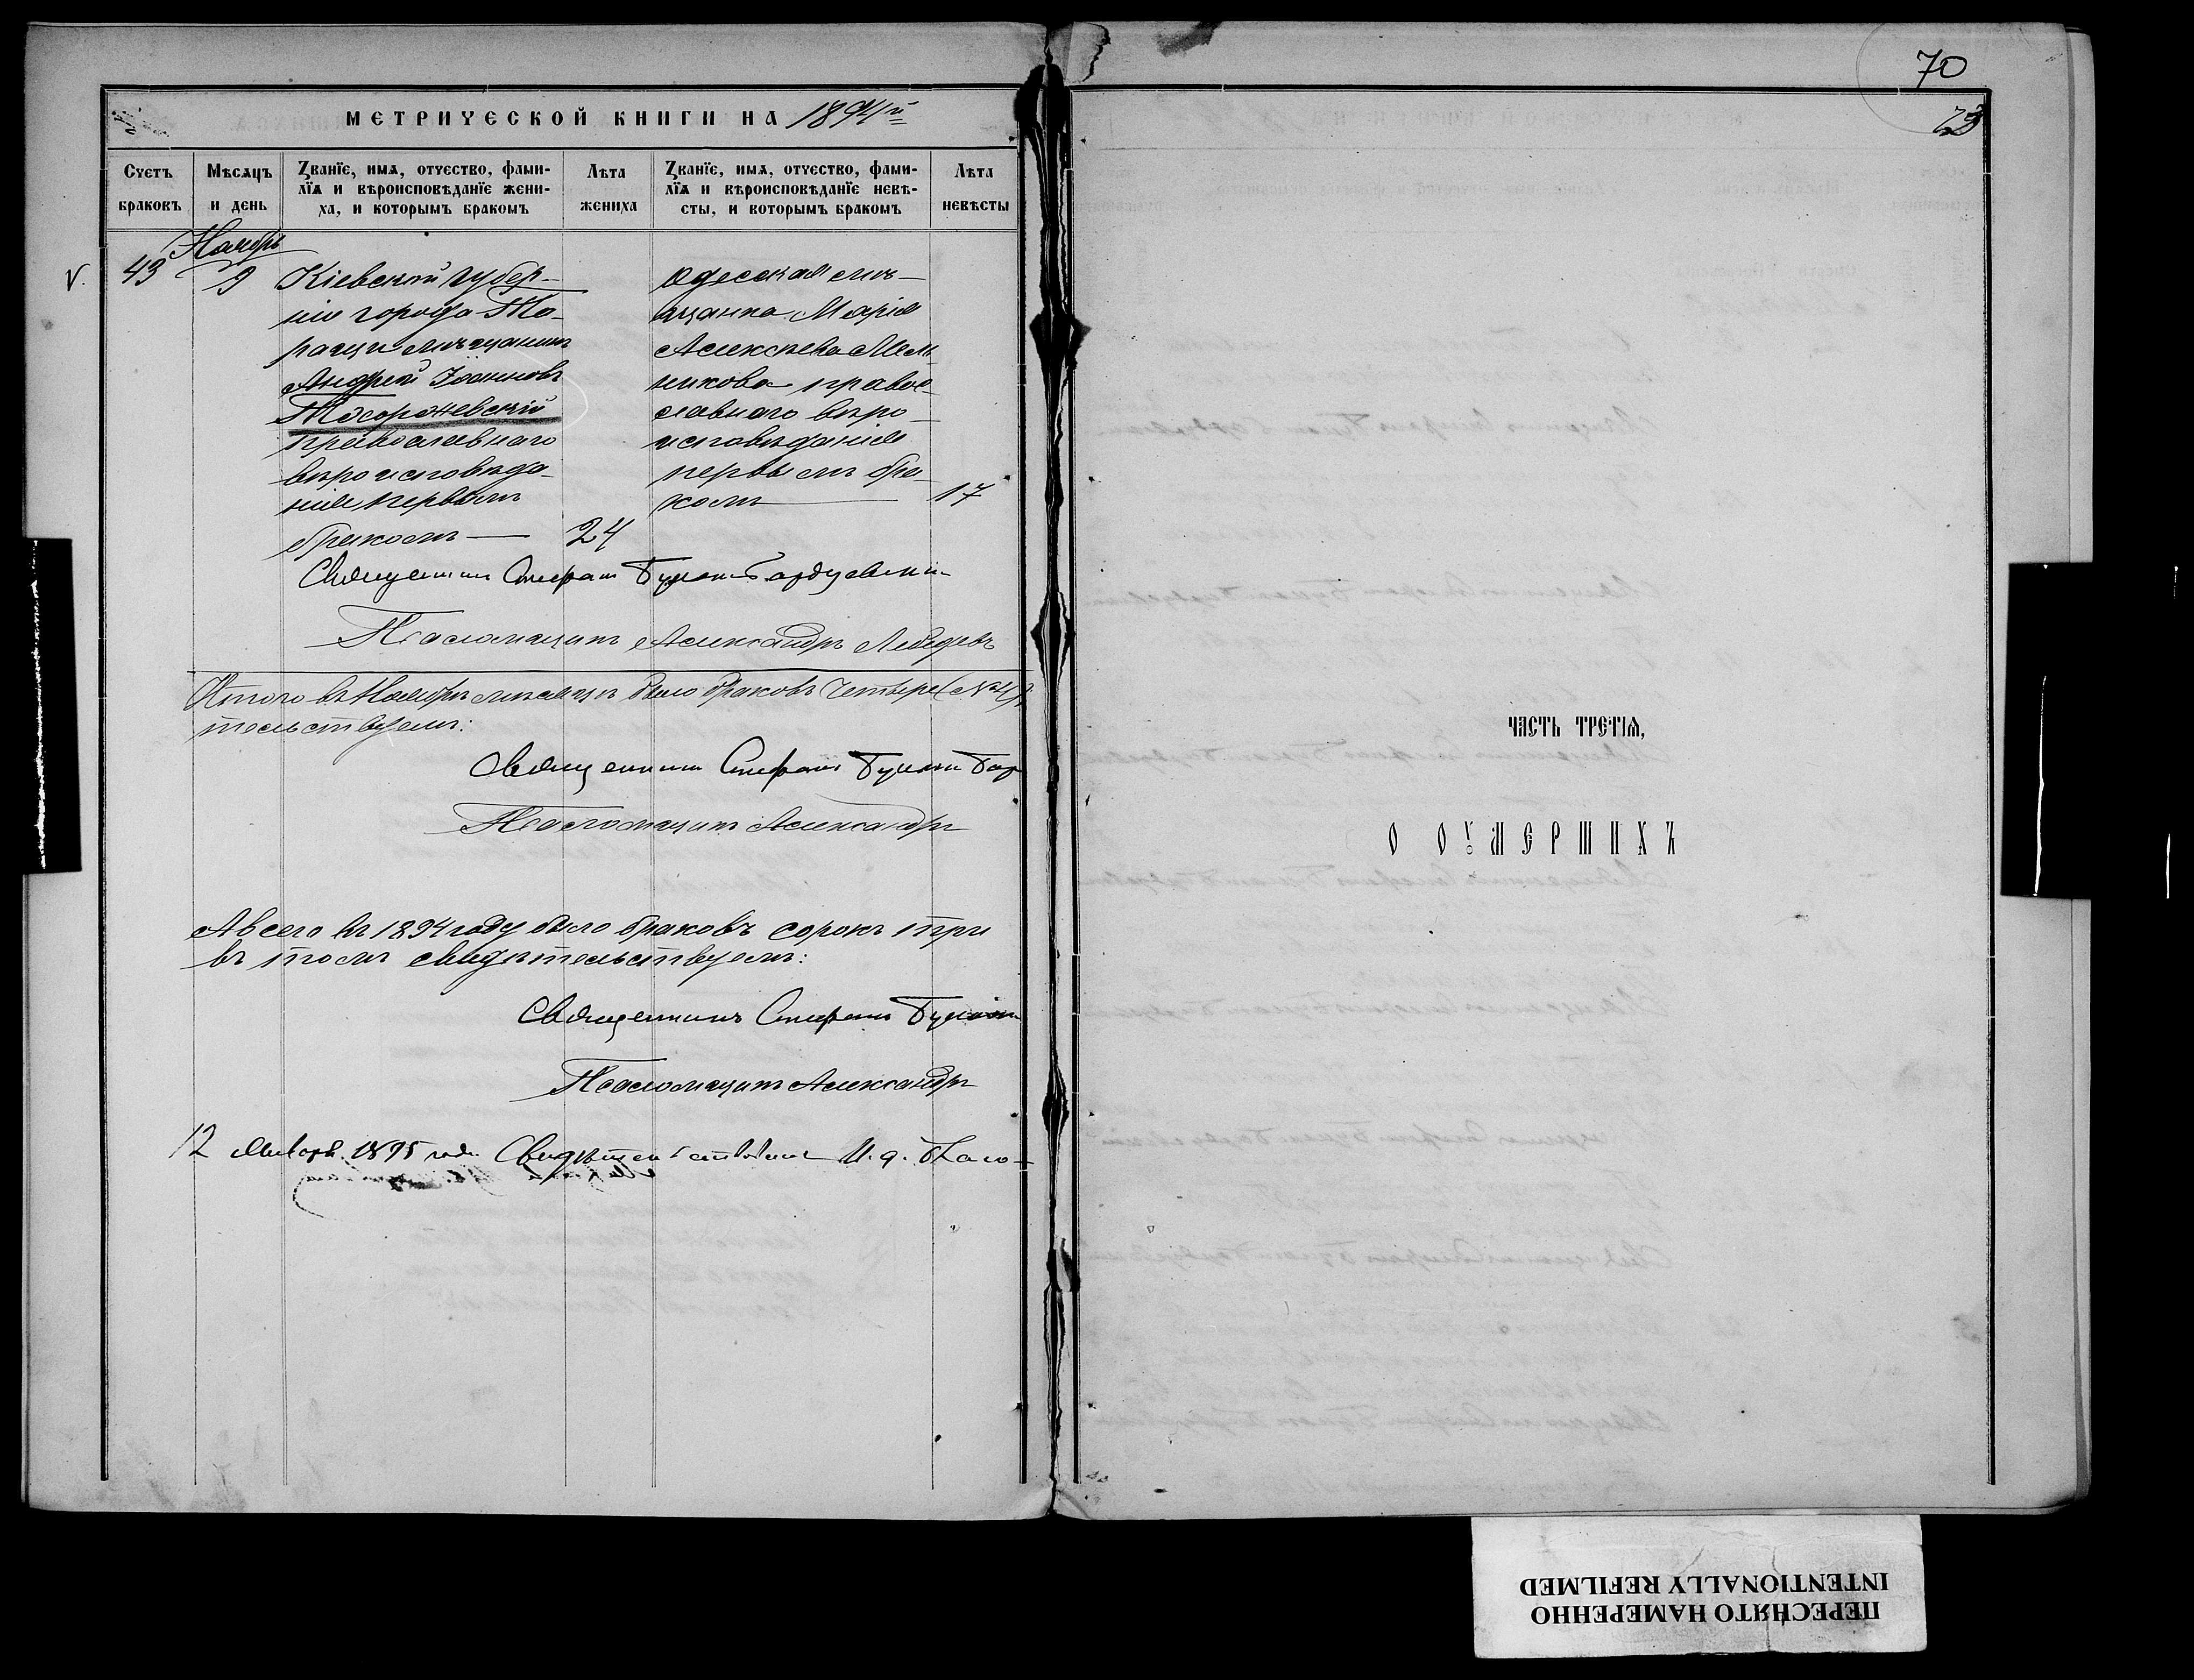 МЕТРИЧЕСКОЙ КНИГИ НА 1894й
Счетъ браковъ
Мѣсяцъ и день
Званїе, имѧ, отчество, фами-
лїѧ и вѣроисповѣданїе жени-
ха, и которымъ бракомъ
Лѣта жениха
Званїе, имѧ, отчество, фами-
лїѧ и вѣроисповѣданїе невѣ-
сты, и которымъ бракомъ
Лѣта невѣсты
Ноябрь
V.
43
9
Кіевской губер-
ніи города Та-
ращи мѣщанинъ
Андрей Іоанновъ
православнаго
вѣроисповѣда-
нія первымъ
бракомъ —
24
Одесская мѣ-
щанка Марія
Алексѣева Мель-
никова право-
славнаго вѣро-
исповѣданія
первымъ бра-
комъ
17
Священникъ Стефанъ
Псаломщикъ Александръ Лебедевъ
Итого въ Ноябрѣ мѣсяцѣ было браковъ четыре (№ 4)
тельствуемъ:
Священникъ Стефанъ
Псаломщикъ Александръ
А всего въ 1894 году было браковъ сорокъ три
въ томъ свидѣтельствуемъ:
Священникъ Стефанъ
Псаломщикъ Александръ
12 Января 1895 года
И. д. Благо-
70
73
ЧАСТЬ ТРЕТІѦ,
О ОУМЕРШИХЪ
ПЕРЕСНЯТО НАМЕРЕННО
INTENTIONALLY REFILMED